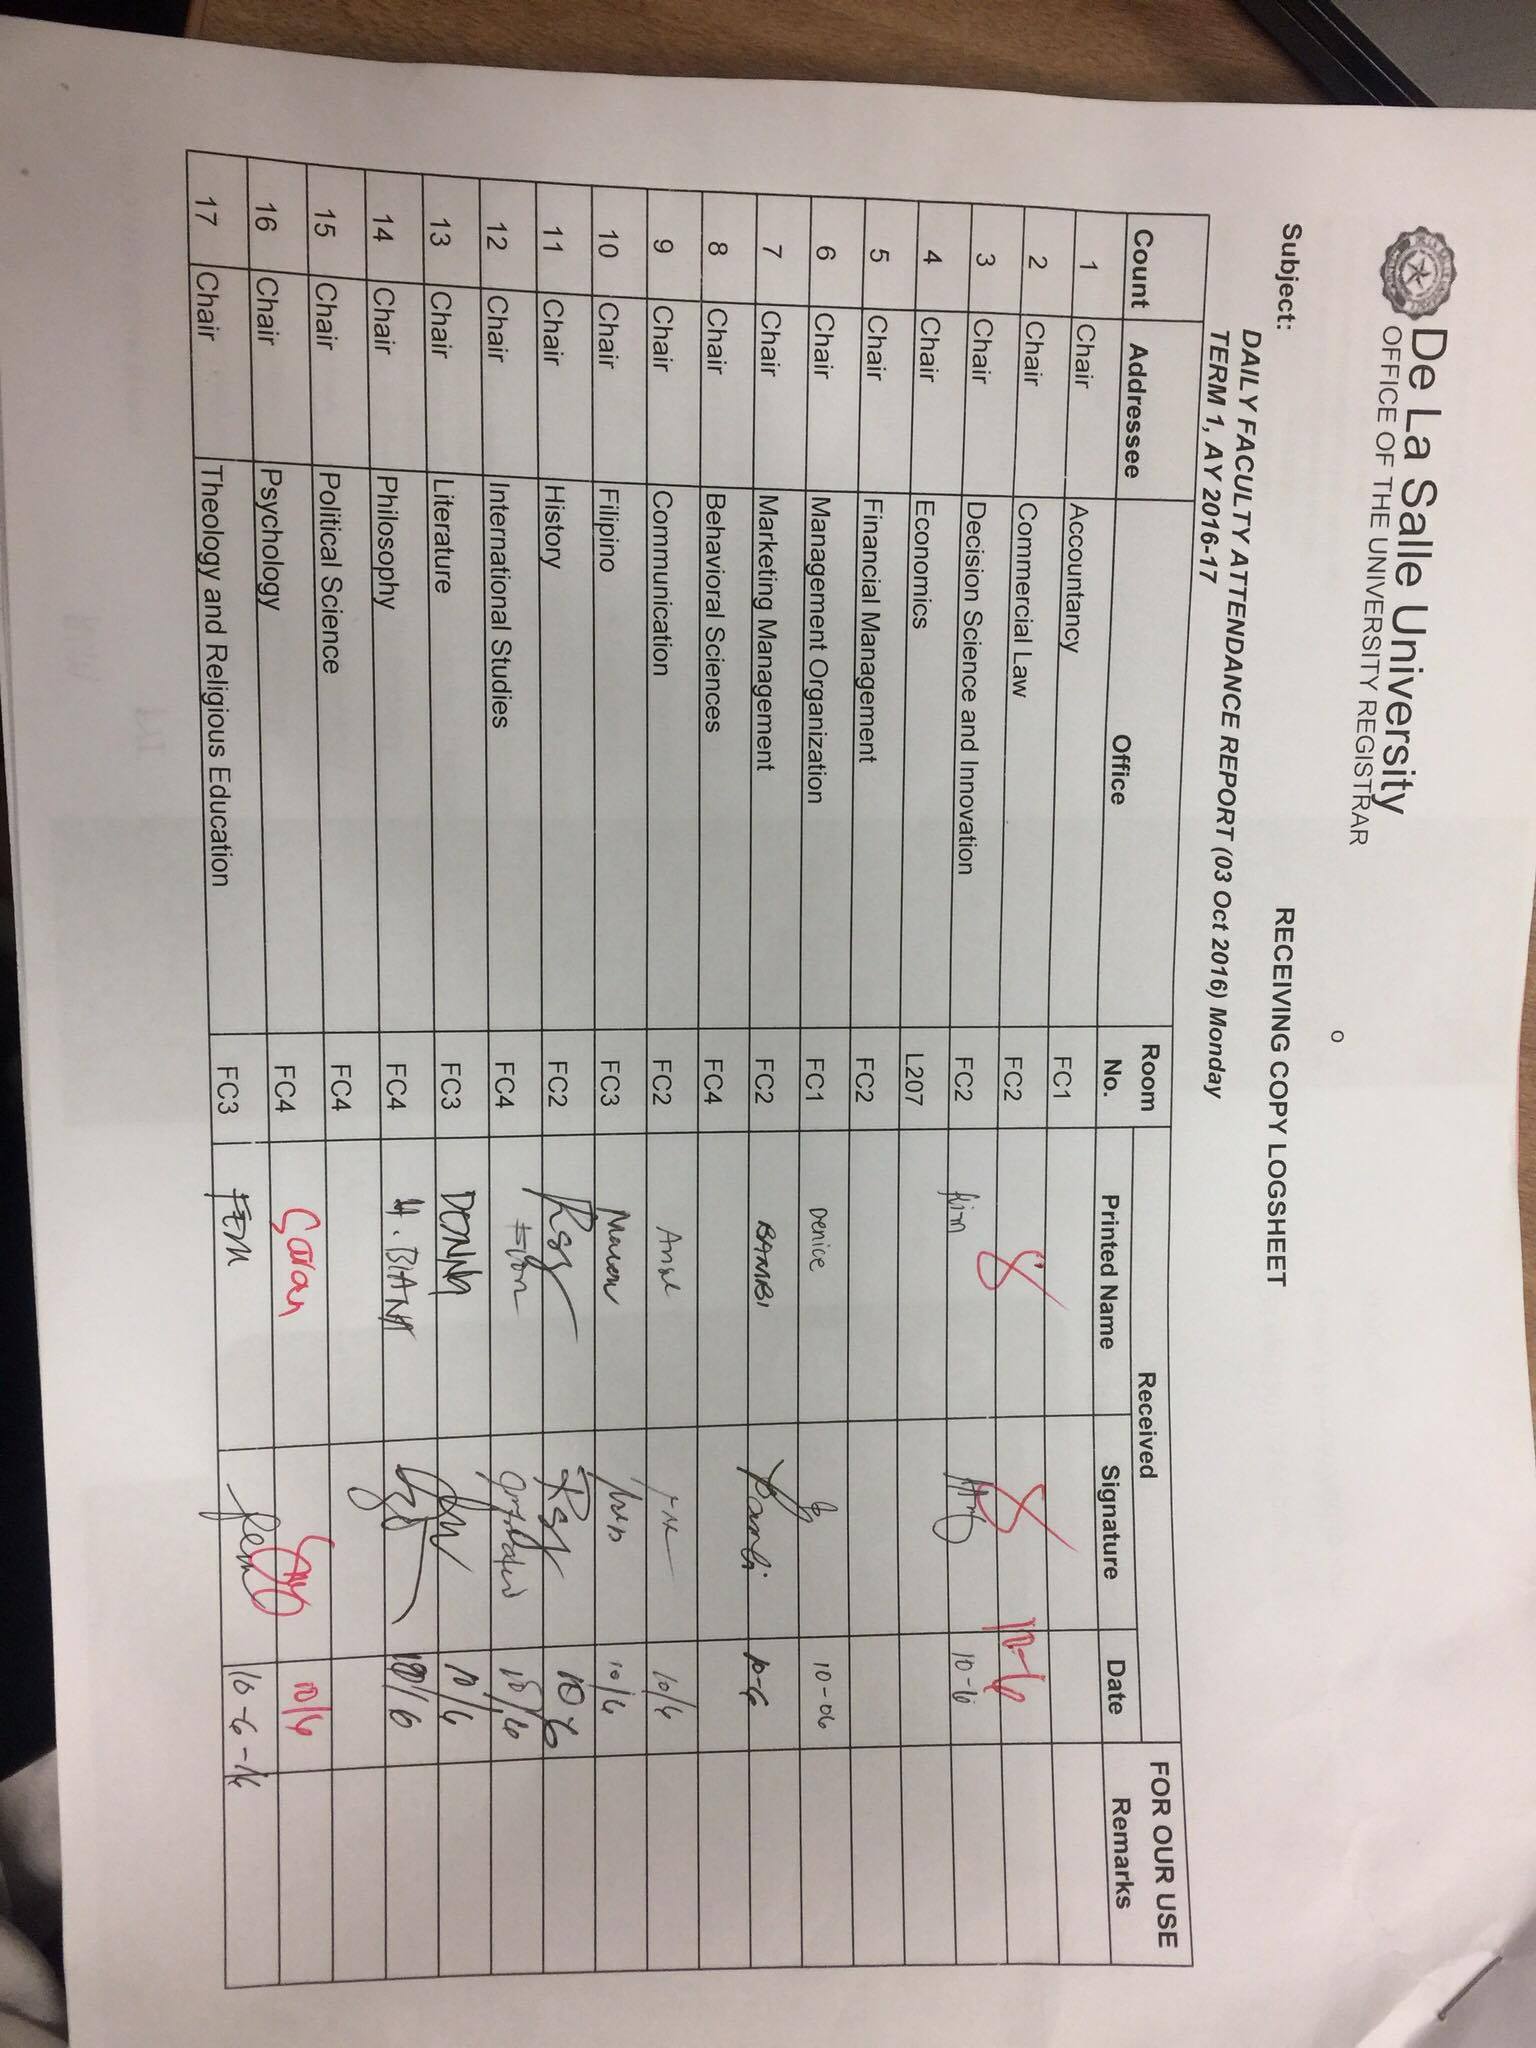 De La Salle University
OFFICE OF THE UNIVERSITY REGISTRAR
o
Subject: RECEIVING COPY LOGSHEET
DAILY FACULTY ATTENDANCE REPORT (03 Oct 2016) Monday
TERM 1, AY 2016-17
Count Addressee Office Room No. Received FOR OUR USE Remarks
Printed Name Signature Date
1 Chair Accountancy FC1
2 Chair Commercial Law FC2 10-6
3 Chair Decision Science and Innovation FC2 Kim 10-6
4 Chair Economics L207
5 Chair Financial Management FC2
6 Chair Management Organization FC1 Denice 10-06
7 Chair Marketing Management FC2 BAMBI Bambi 10-6
8 Chair Behavioral Sciences FC4
9 Chair Communication FC2 10/6
10 Chair Filipino FC3 10/6
11 Chair History FC2 Rsj Rsj 10-6
12 Chair International Studies FC4 10/6
13 Chair Literature FC3 DONNA 10/6
14 Chair Philosophy FC4 H. BIANA 10/6
15 Chair Political Science FC4
16 Chair Psychology FC4 Sarah 10/6
17 Chair Theology and Religious Education FC3 FEM fem 10-6-16